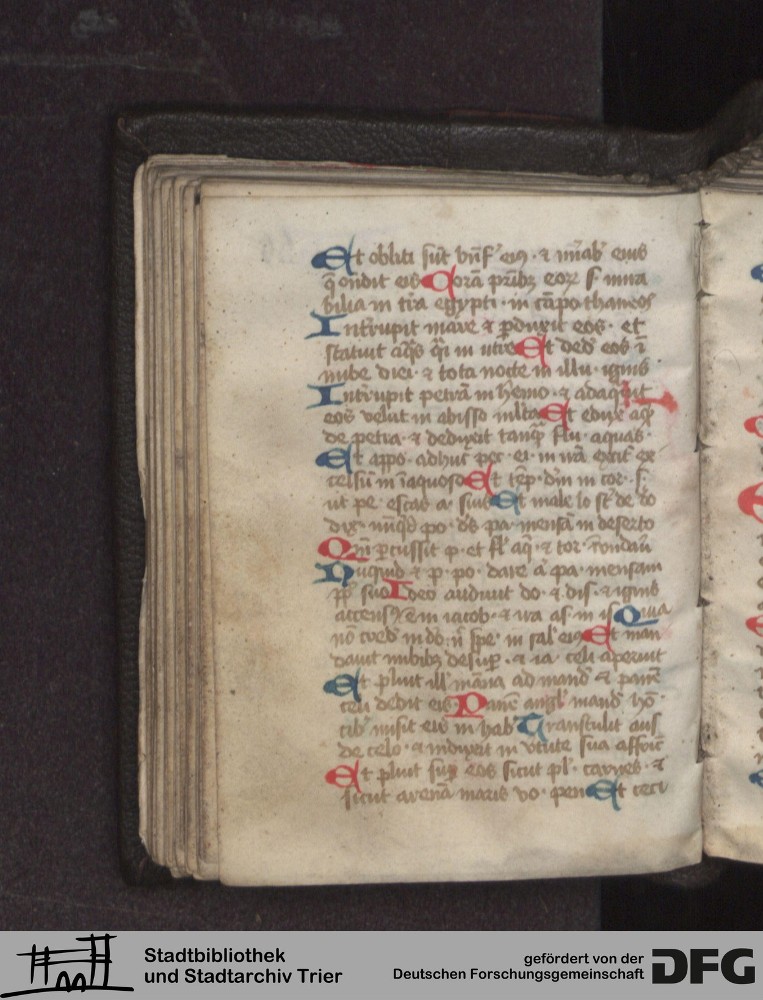 Et obliti sūt bn̄f eiꝰ · ⁊ mīab eius
q̄ on̄dit eis Corā pr̄ibꝫ eoꝝ f · mira
bilia in tr̄a egypti · in cāpo thaneos
Int̄rupit mare ⁊ ꝑduxit eos · et
statuit aq̄s q̄i in utre Et ded eos ī
nube diei · ⁊ tota nocte in illu · ignis
Int̄rupit petrā in h̄emo · ⁊ adaq̄uit
eos velut in abisso mlta Et eduxͭ aq̄
de petra · ⁊ deduxit tanq̄ flu · aquas ·
Et appo · adhuc pec · ei · in irā excit̄ ex
celsū in īaquoso Et tēp · dm̄ in cor · s ·
ut pe · escas a · suis Et male lo st̄ de do
dix · nūqd po · ds pa · mensā in deserto
Qm̄ ꝑcussit p · et fl aq̄ · ⁊ tor · īondau
Nuquid ⁊ p · po · dare a pa · mensam
pp suo Ideo audiuit do · ⁊ dis · ⁊ ignis
accensꝰ ē in iacob · ⁊ ira as · in is Quia
nō cred in do · n̄ spe · in sal eiꝰ Et man
dauit nubibꝫ desuꝑ · ⁊ ia · celi aperuit
Et pluit ill māna ad mand ⁊ panē
celi dedit eis · Panē angl mand hō ·
cib misit eis in hab Transtulit aus
de celo · ⁊ induxit in v̄tute sua affric
Et pluit suꝑ eos sicut pl · carnes · ⁊
sicut arenā maris vo · pen Et ceci
Stadtbibliothek
und Stadtarchiv Trier
gefördert von der
Deutschen Forschungsgemeinschaft
DFG